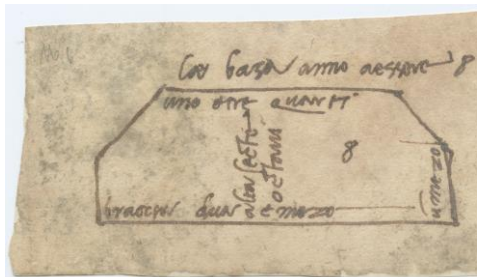 le base anno aessere 8
uno etre quarti
alta secto
octavi
8
braccia dua e mezo
u mezo